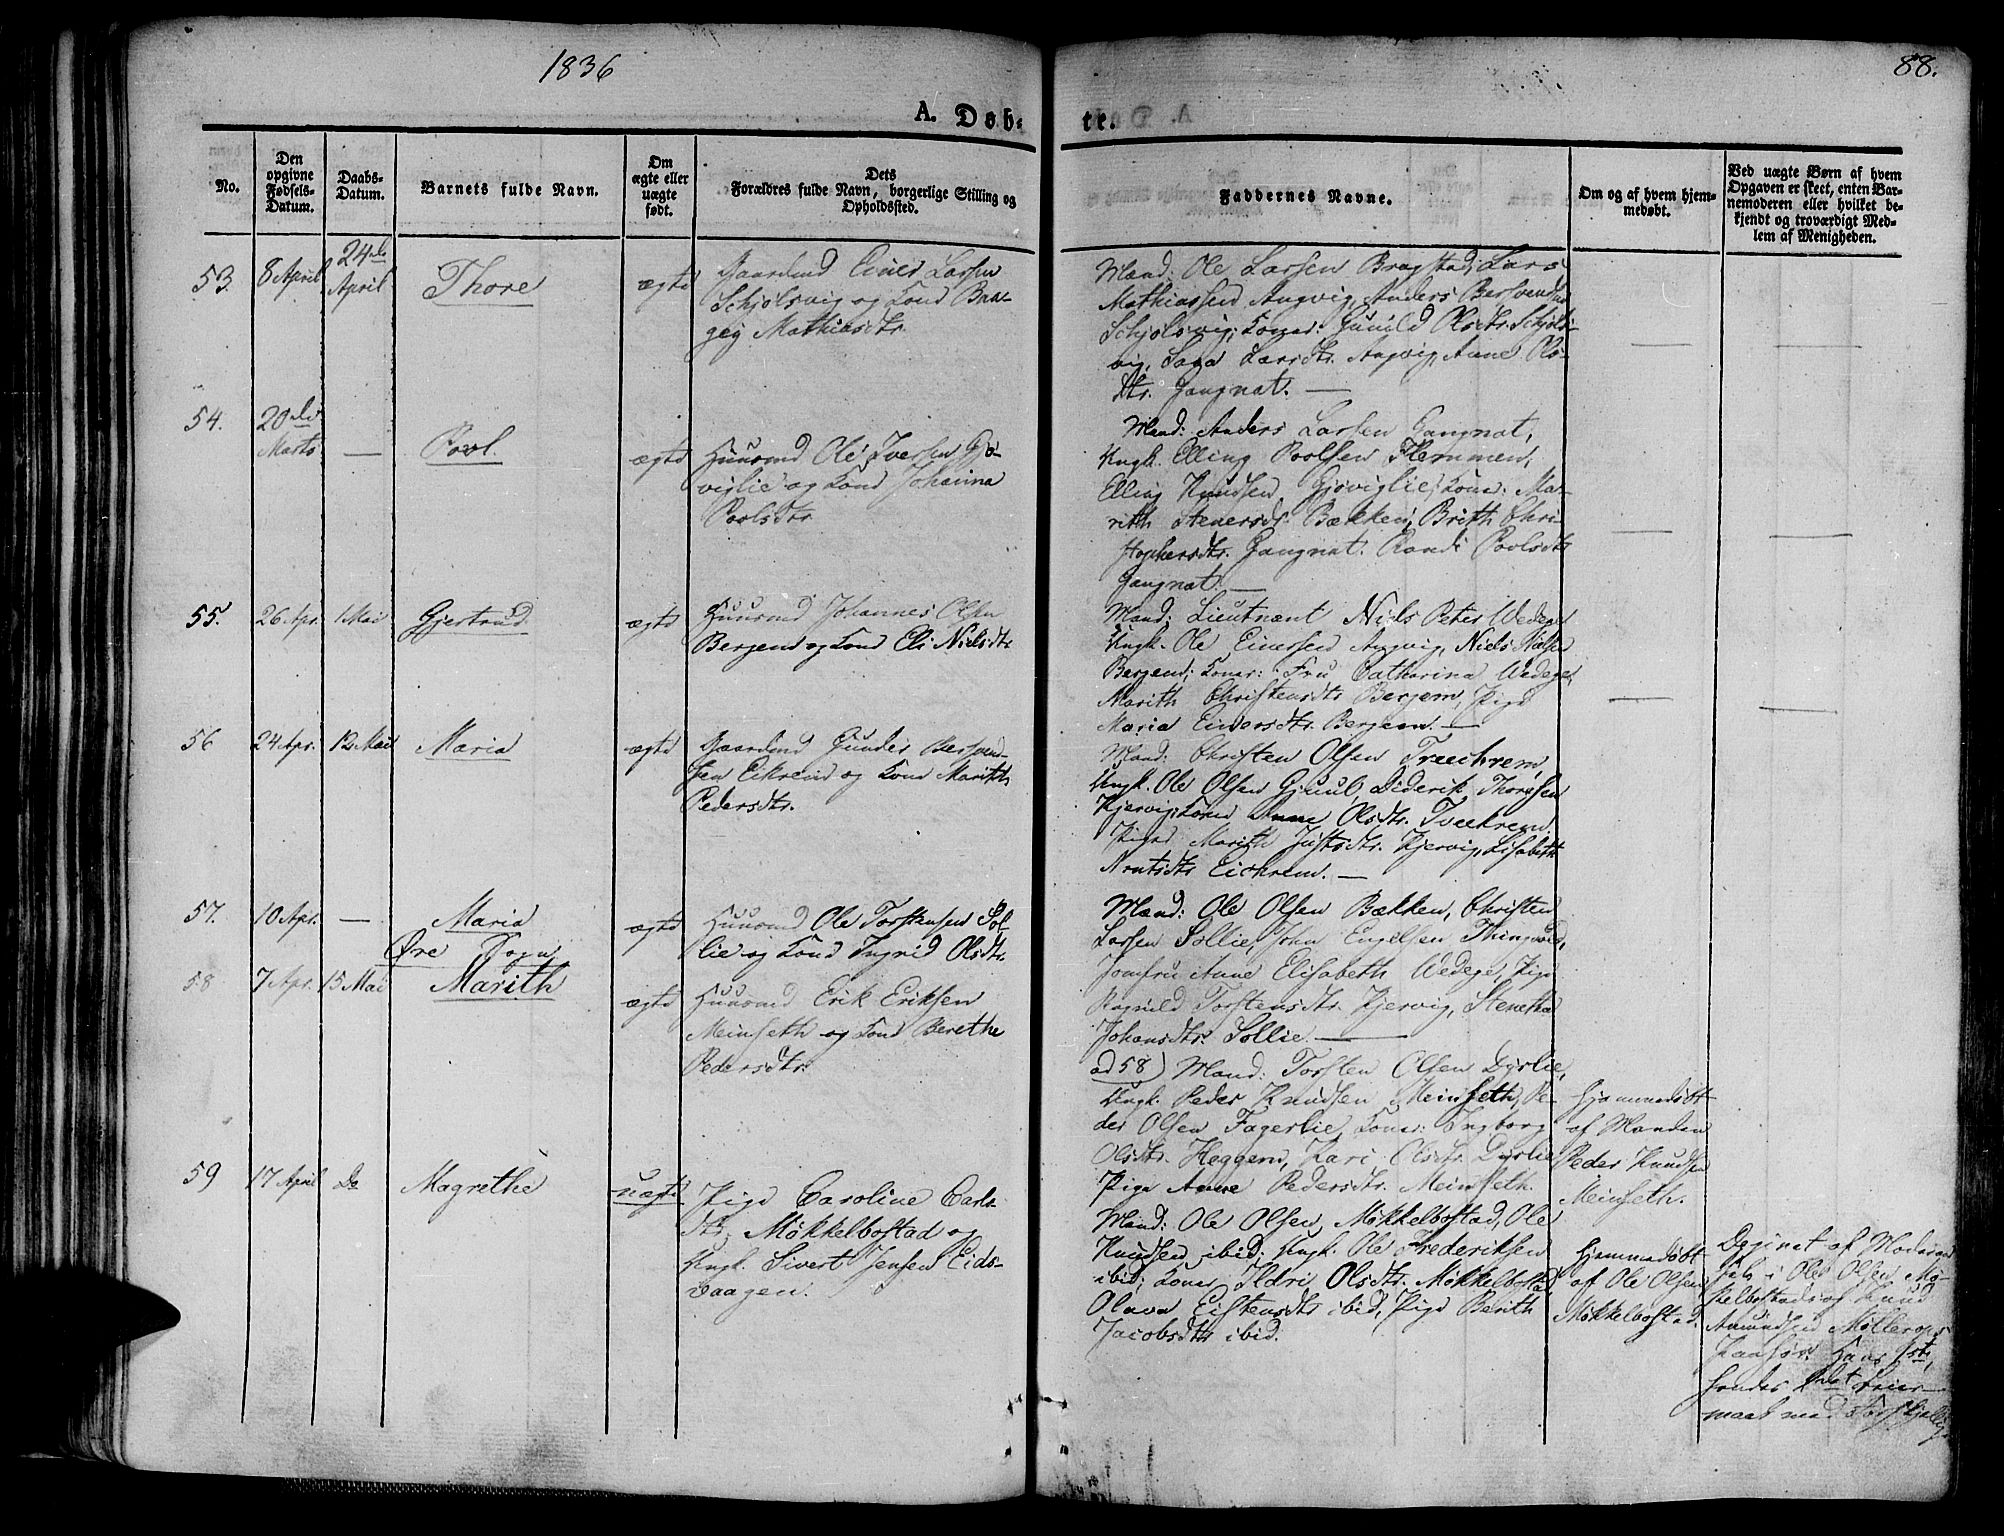 1836
88.
A. Døb-
te.
No.
Den opgivne Fødsels-Datum.
Daabs-Datum.
Barnets fulde Navn.
Om ægte eller uægte født.
Dets
Forældres fulde Navn, borgerlige Stilling og Opholdssted.
Faddernes Navne.
Om og af hvem hjem-
medøbt.
Ved uægte Børn af hvem
Opgaven er skeet, enten Bar-
nemoderen eller hvilket be-
kjendt og troværdigt Med-
lem af Menigheden.
53.
8 April
24de April
Thore
ægte
Gaardmd Einer Larsen
Schjølsvig og Kone Baa-
gey Mathiasdtr.
Mænd: Ole Larsen Bragstad, Lars
Mathiassen Angvig, Anders Bersvendsen
Schjølsvig; Koner: Gunild Olsdtr. Schjøls-
vig, Larsdtr. Angvig, Anne Ols-
dtr. Gangnat. —
54.
20de Marts
—
Povl.
ægte
Huusmd Ole Iversen Gjø-
viglie og Kone Johanna
Povlsdtr
Mænd: Anders Larsen Gangnat,
Ungk. Elling Povlsen Flemmen,
Elling Knudsen Gjøviglie; Koner: Ma-
rith Stenersdr. Bækken, Brith Chri-
stophersdtr. Gangnat. Randi Povlsdtr
Gangnat. —
55.
26 Apr.
1 Mai
Gjertrud
ægte
Huusmd Johannes Olsen
Bergem og Kone Eli Nielsdtr
Mænd: Lieutnant Niels Peter Wedege
Ungk. Ole Einersen Angvig, Niels Nielsen
Bergem; Koner: Fru Catharina Wedege,
Marith Christensdtr Bergem, Pige
Maria Einersdtr. Bergem. —
56
24 Apr.
12 Mai
Maria
ægte
Gaardmd Gunder Bersvend-
sen Eikrem og Kone Marith
Pedersdtr.
Mænd: Christen Olsen Tveekrem,
Ungk. Ole Olsen Gjuul, Diderik Thoresen
Kjervig; Kone Anne Olsdtr. Tveekrem.
Piger Marith Justsdtr. Kjervig, Lisabeth
Eickrem. —
57.
10 Apr.
—
Maria
ægte
Huusmd Ole Torstensen Sol-
lie og Kone Ingrid Olsdtr.
Mænd: Ole Olsen Bækken, Christen
Larsen Sollie, John Engelsen Thingvold,
Jomfru Anne Elisabeth Wedege, Pige
Ragnild Torstensdtr. Kjervig, Stenetha
Johansdtr. Sollie. —
Øre Sogn
58
7 Apr.
15 Mai
Marith
ægte
Huusmd Erik Eriksen
Meinseth og Kone Berethe
Pedersdtr:
ad 58) Mænd: Torsten Olsen Dyrlie,
Ungk. Peder Knudsen Meinseth, Pe-
der Olsen Fagerlie, Koner: Ingborg
Olsdtr. Heggem, Kari Olsdtr. Dyrlie
Pige Anne Pedersdtr. Meinseth.
Hjemmedøbt
af Manden
Peder Knudsen
Meinseth.
59
17 April
Do
Magrethe
uægte
Pige Caroline Carls-
dtr. Møkkelbostad og
Ungk. Sivert Jensen Eids-
vaagen.
Mænd: Ole Olsen Møkkelbostad, Ole
Knudsen ibid; Ungk. Ole Frederiksen
ibid; Koner Ildri Olsdtr. Møkkelbostad,
Olava Eistensdtr ibid, Pige Berith
Jacobsdtr ibid.
Hjemmedøbt
af Ole Olsen
Møkkelbostad.
Opgivet af Moderen
selv i Ole Olsen Mø-
kelbostads og Knud
Amundsen Møllerops
Paahør. Hans 1ste,
hendes 2det Leier-
maal med